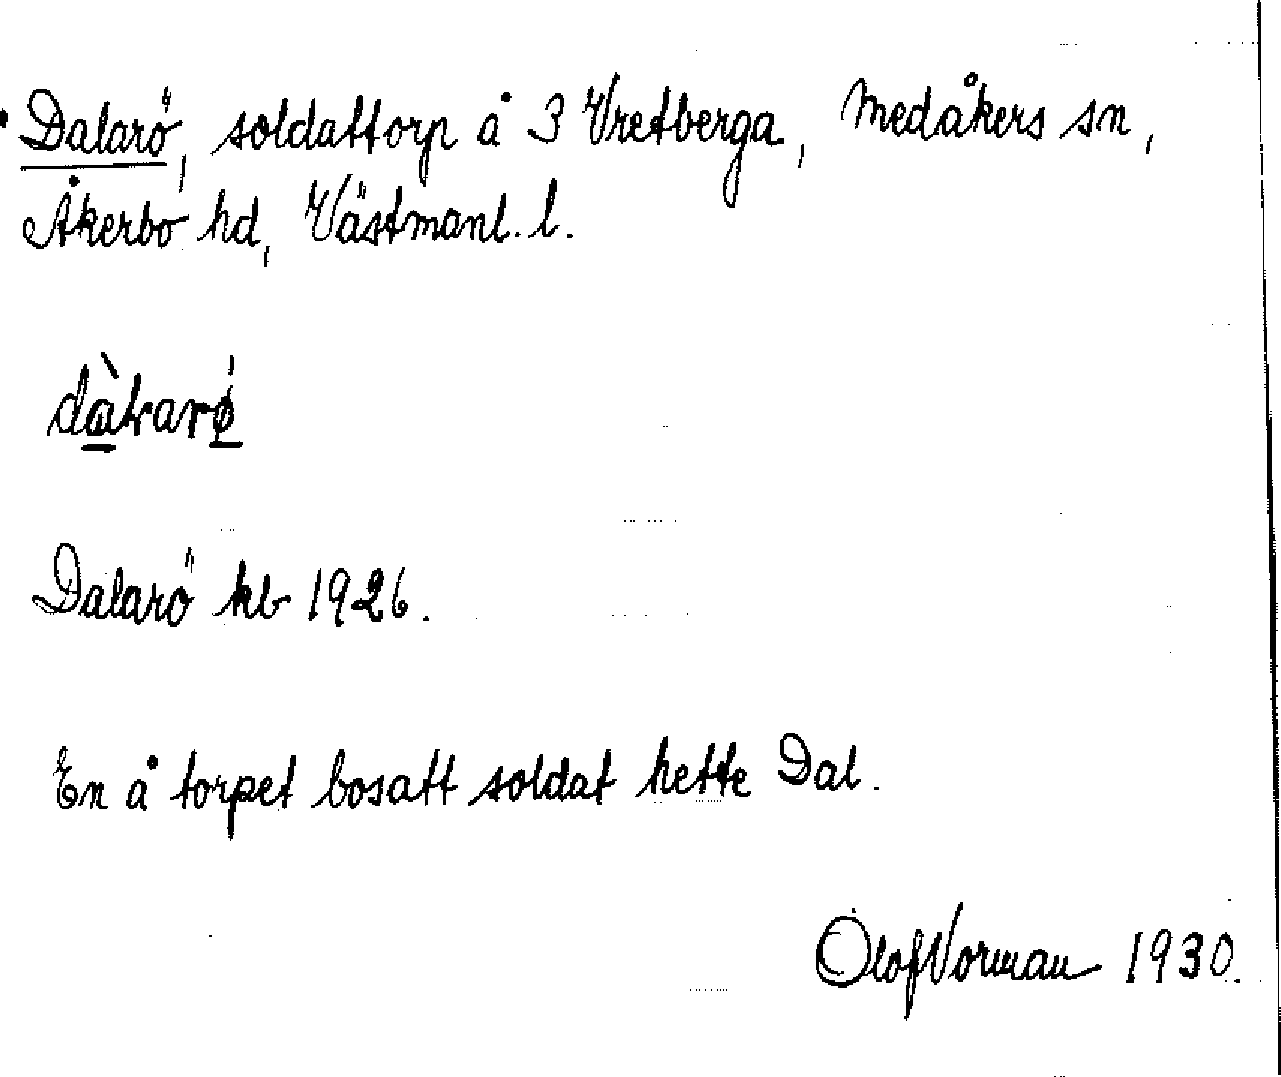 Dalarö, soldattorp å 3 Vretberga, Medåkers sn,
Åkerbo hd, Västmanl. l.
Dalarö kb 1926.
En å torpet bosatt soldat hette Dal.
Olof Vorman 1930.